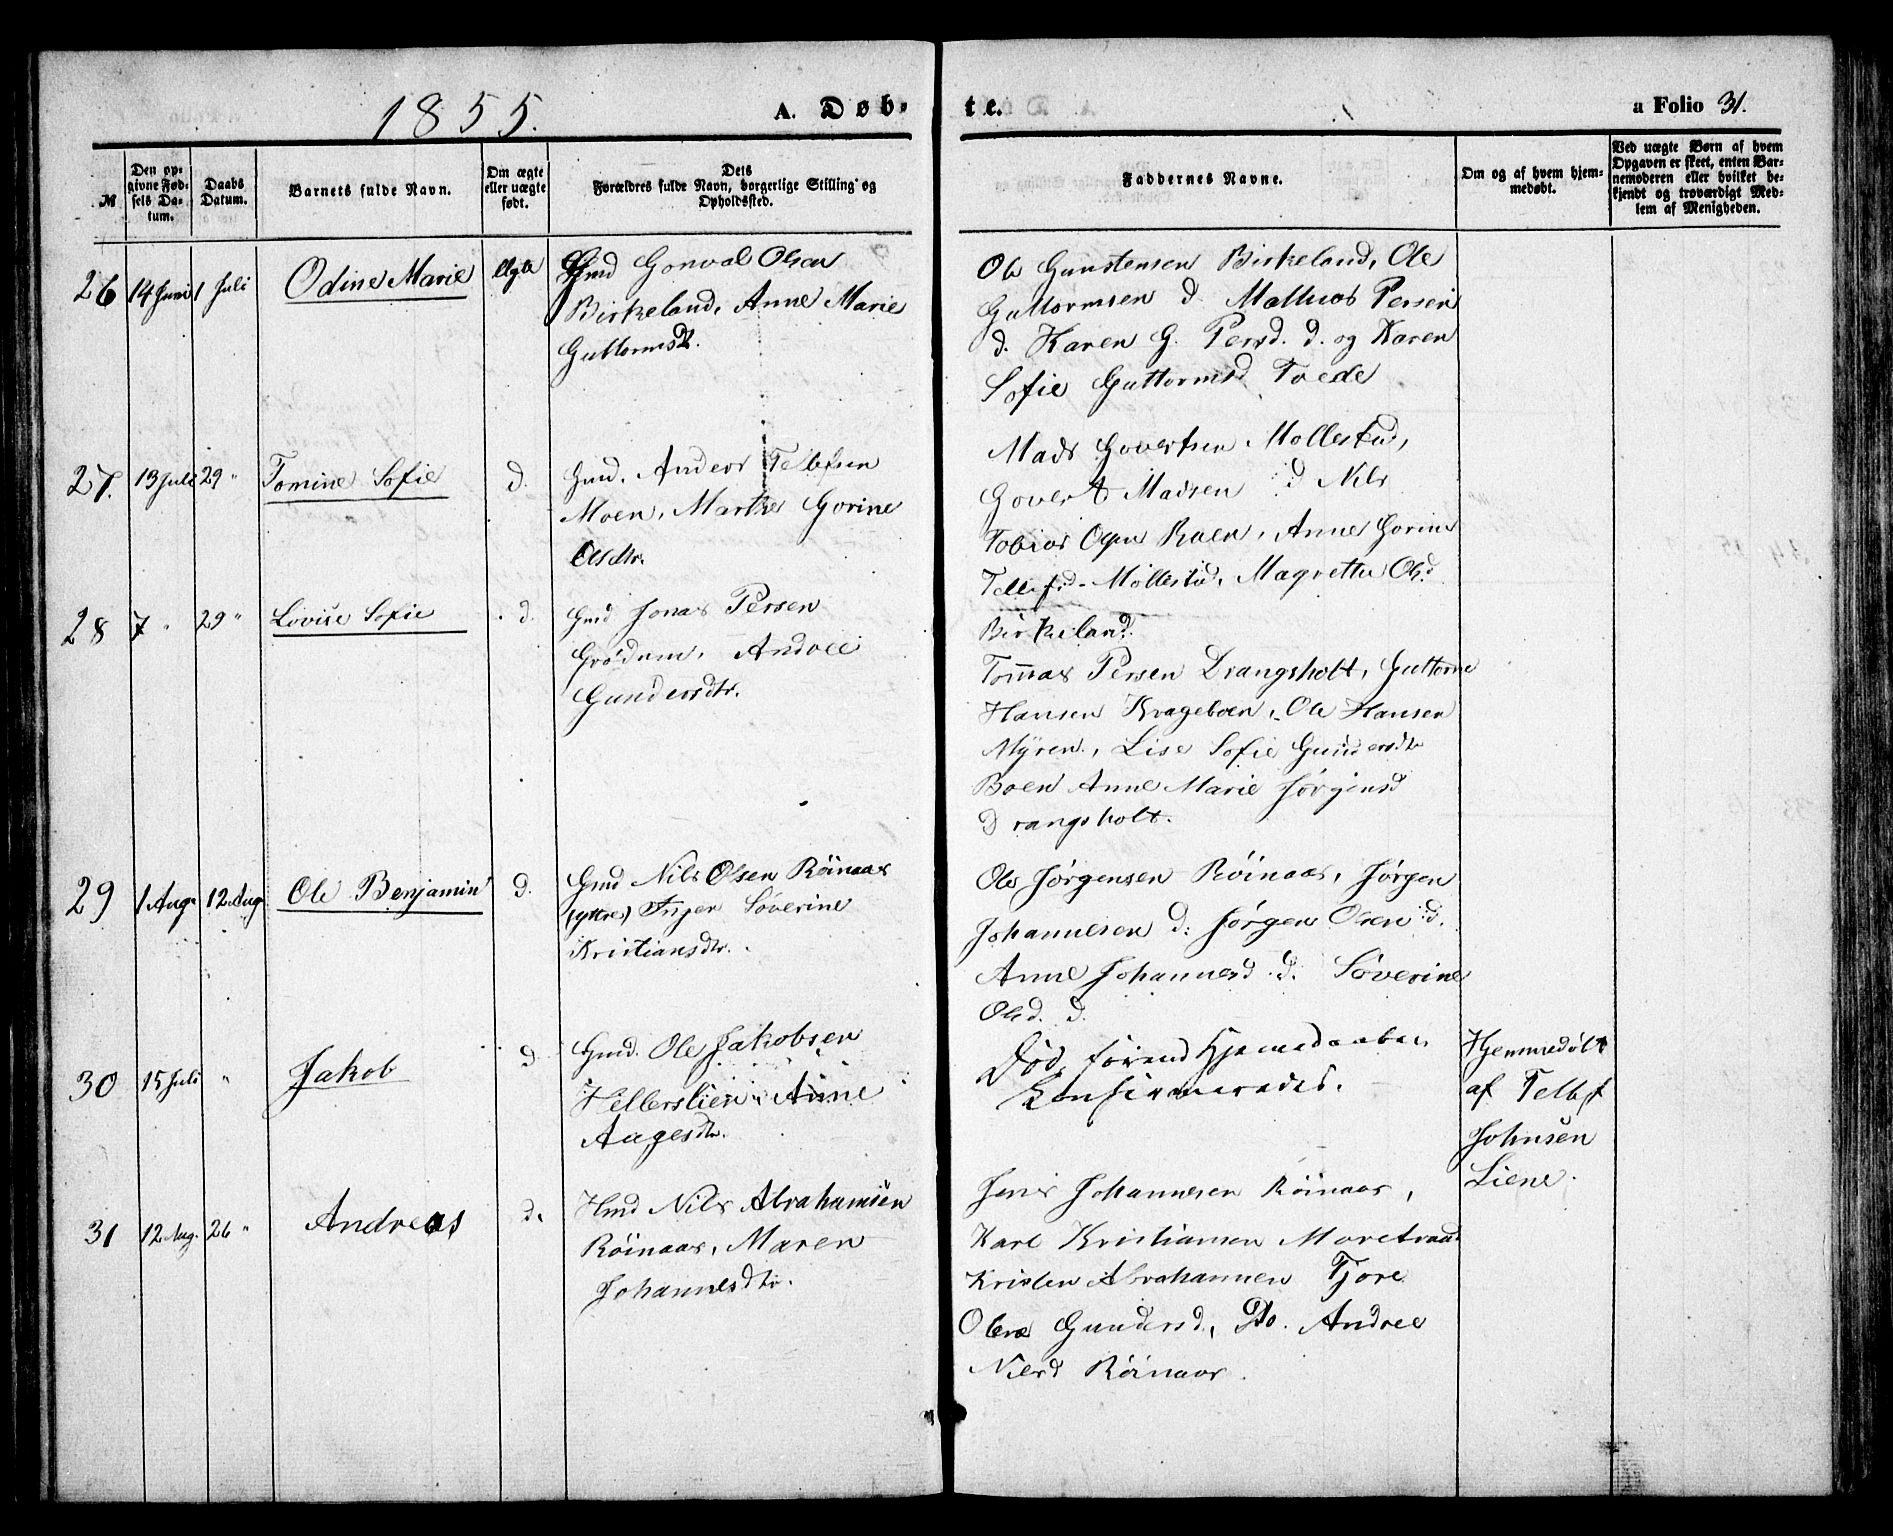 1855.
A. Døb-
te.
a Folio 31.
№
Den op-
givne Fød-
sels Da-
tum.
Daabs
Datum.
Barnets fulde Navn.
Om ægte
eller uægte
født.
Dets
Forældres fulde Navn, borgerlige Stilling og
Opholdssted.
Faddernes Navne.
Om og af hvem hjem-
medøbt.
Ved uægte Børn af hvem
Opgaven er skeet, enten Bar-
nemoderen eller hvilket be-
kjendt og troværdigt Med-
lem af Menigheden.
26 14 Juni 1 Juli Odine Marie ægte Gmd Gonval Olsen
Birkeland, Anne Marie
Guttormsdtr.
Ole Gunstensen Birkeland, Ole
Guttormsen d. Mathias Persen
d. Karen G. Persd. d. og Karen
Sofie Guttormsd Tvede
27. 13 Juli 29 " Tomine Sofie d. Gmd. Anders Tellefsen
Moen, Marthe Gorine
Olsdtr.
Mads Govertsen Mollestad,
Govert Madsen d Nils
Tobias Ogen Boen, Anne Gorine
Tellefsd. Mollestad, Magrethe Olsd
Birkeland.
28 7 " 29 " Lovise Sofie d. Gmd Jonas Persen
Grødum, Andree
Gundersdtr.
Tommas Persen Drangsholt, Guttorm
Hansen Krageboen, Ole Hansen
Myren, Lise Sofie Gundersdtr
Boen Anne Marie Jørgensd
Drangsholt.
29 1 Aug. 12 Aug Ole Benjamin d. Gmd Nils Olsen Röinaas
(yttre) Inger Severine
Kristiansdtr.
Ole Jørgensen Röinaas, Jørgen
Johannesen d: Jørgen Olsen d.
Anne Johannesd. d. Severine
Olsd. d.
30 15 Juli " Jakob d. Gmd. Ole Jakobsen
Hellerslien Anne
Aagesdtr.
Död, förend Hjemmedaaben
Konfirmeredes.
Hjemmedøbt
af Tellef
Johnsen
Liene.
31 12 Aug. 26 " Andreas d. Hmd Nils Abrahamsen
Röinaas, Maren
Johannesdtr.
Jens Johannesen Röinaas,
Karl Kristiansen Moretraad
Kristen Abrahamsen Fjore
Olene Gundersd. Do. Andree
Nilsd Röinaas.